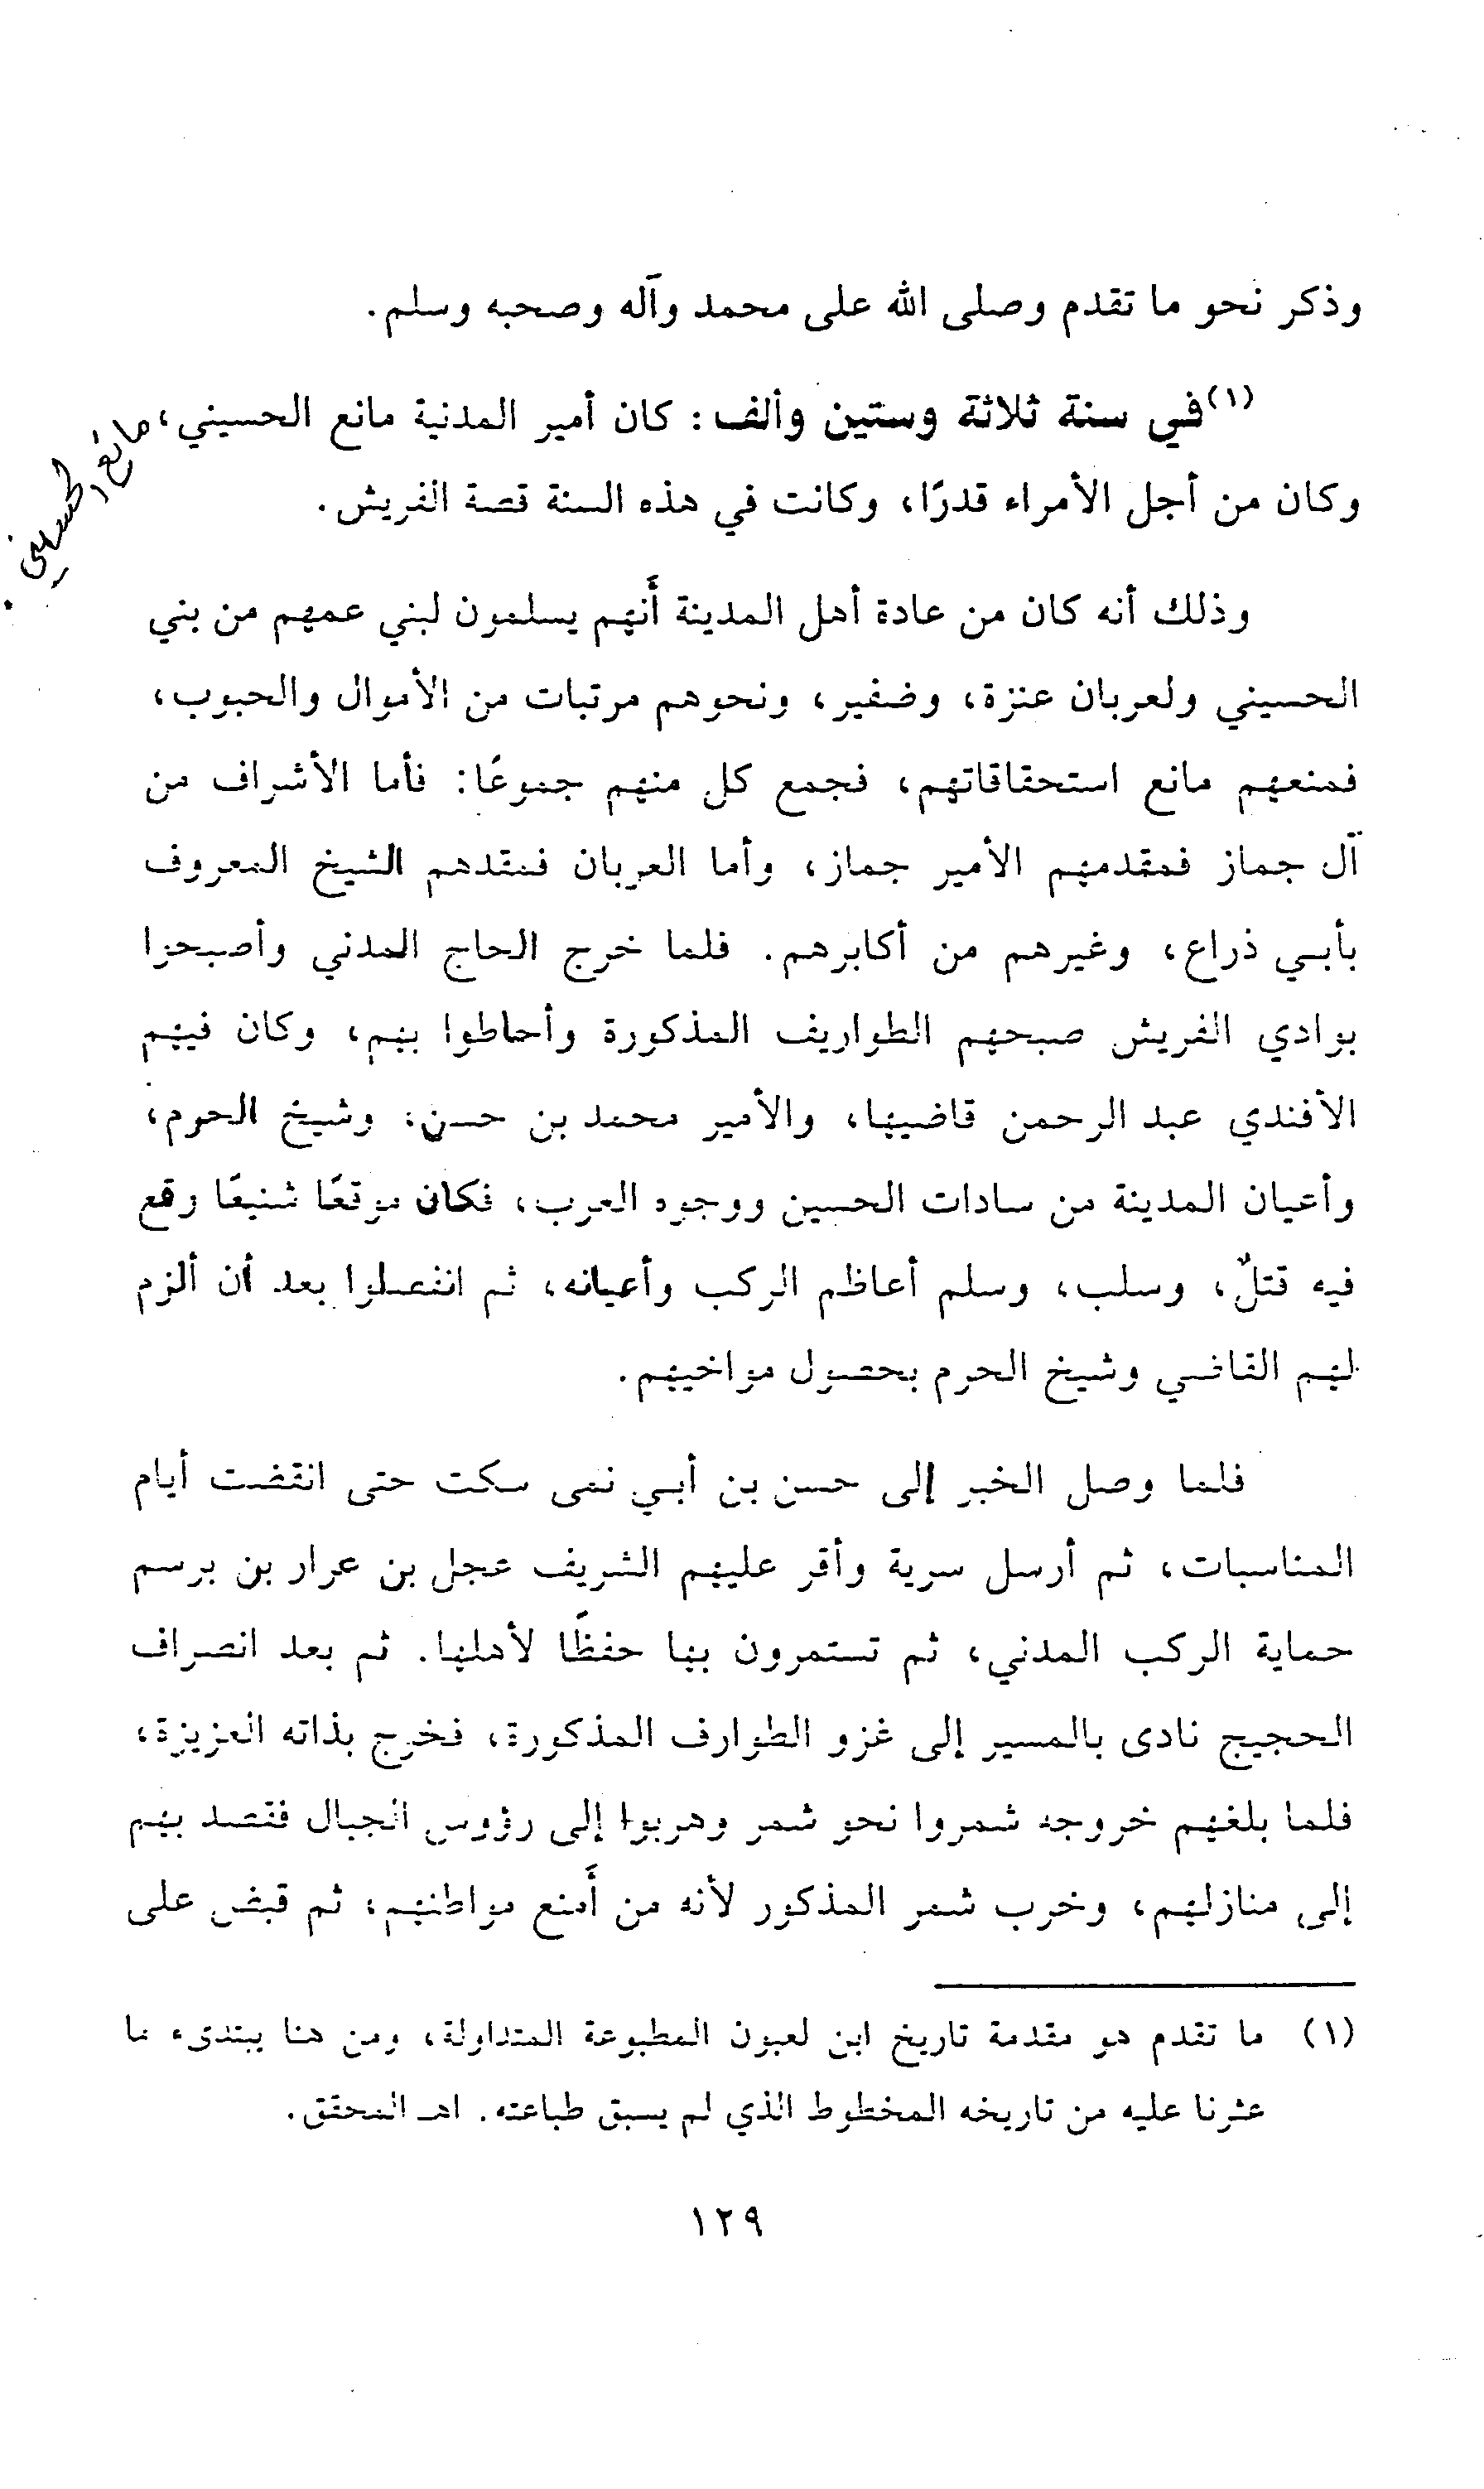 وذكر نحو ما تقدم وصلى الله على محمد وآله وصحبه وسلم.
(١)في سنة ثلاثة وستين وألف: كان أمير المدنية مانع الحسيني،
مانع الحسيني
وكان من أجل الأمراء قدرًا، وكانت في هذه السنة قصة الفريش.
وذلك أنه كان من عادة أهل المدينة أَنهم يسلمون لبني عمهم من بني
الحسيني ولعربان عنزة، وضفير، ونحوهم مرتبات من الأموال والحبوب،
فمنعهم مانع استحقاقاتهم، فجمع كل منهم جموعًا: فأما الأشراف من
آل جماز فمقدمهم الأمير جماز، وأما العربان فمقدهم الشيخ المعروف
بأبي ذراع، وغيرهم من أكابرهم. فلما خرج الحاج المدني وأصبحوا
بوادي الفريش صبحهم الطواريف المذكورة وأحاطوا بهم، وكان فيهم
الأفندي عبد الرحمن قاضيها، والأمير محمد بن حسن، وشيخ الحرم،
وأعيان المدينة من سادات الحسين ووجوه العرب، فكان موقعًا شنيعًا وقع
فيه قتلٌ، وسلب، وسلم أعاظم الركب وأعيانه، ثم انفصلوا بعد أن ألزم
لهم القاضي وشيخ الحرم بحصول مواخيهم.
فلما وصل الخبر إلى حسن بن أبي نمى سكت حتى انقضت أيام
المناسبات، ثم أرسل سرية وأقر عليهم الشريف عجل بن عرار بن برسم
حماية الركب المدني، ثم تستمرون بها حفظًا لأهلها. ثم بعد انصراف
الحجيج نادى بالمسير إلى غزو الطوارف المذكورة، فخرج بذاته العزيزة،
فلما بلغهم خروجه شمروا نحو شمر وهربوا إلى رؤوس الجبال فقصد بهم
إلى منازلهم، وخرب شمر المذكور لأنه من أَمنع مواطنهم، ثم قبض على
(١) ما تقدم هو مقدمة تاريخ ابن لعبون المطبوعة المتداولة، ومن هنا يبتدىء ما
عثرنا عليه من تاريخه المخطوط الذي لم يسبق طباعته. اهـ المحقق.
١٢٩